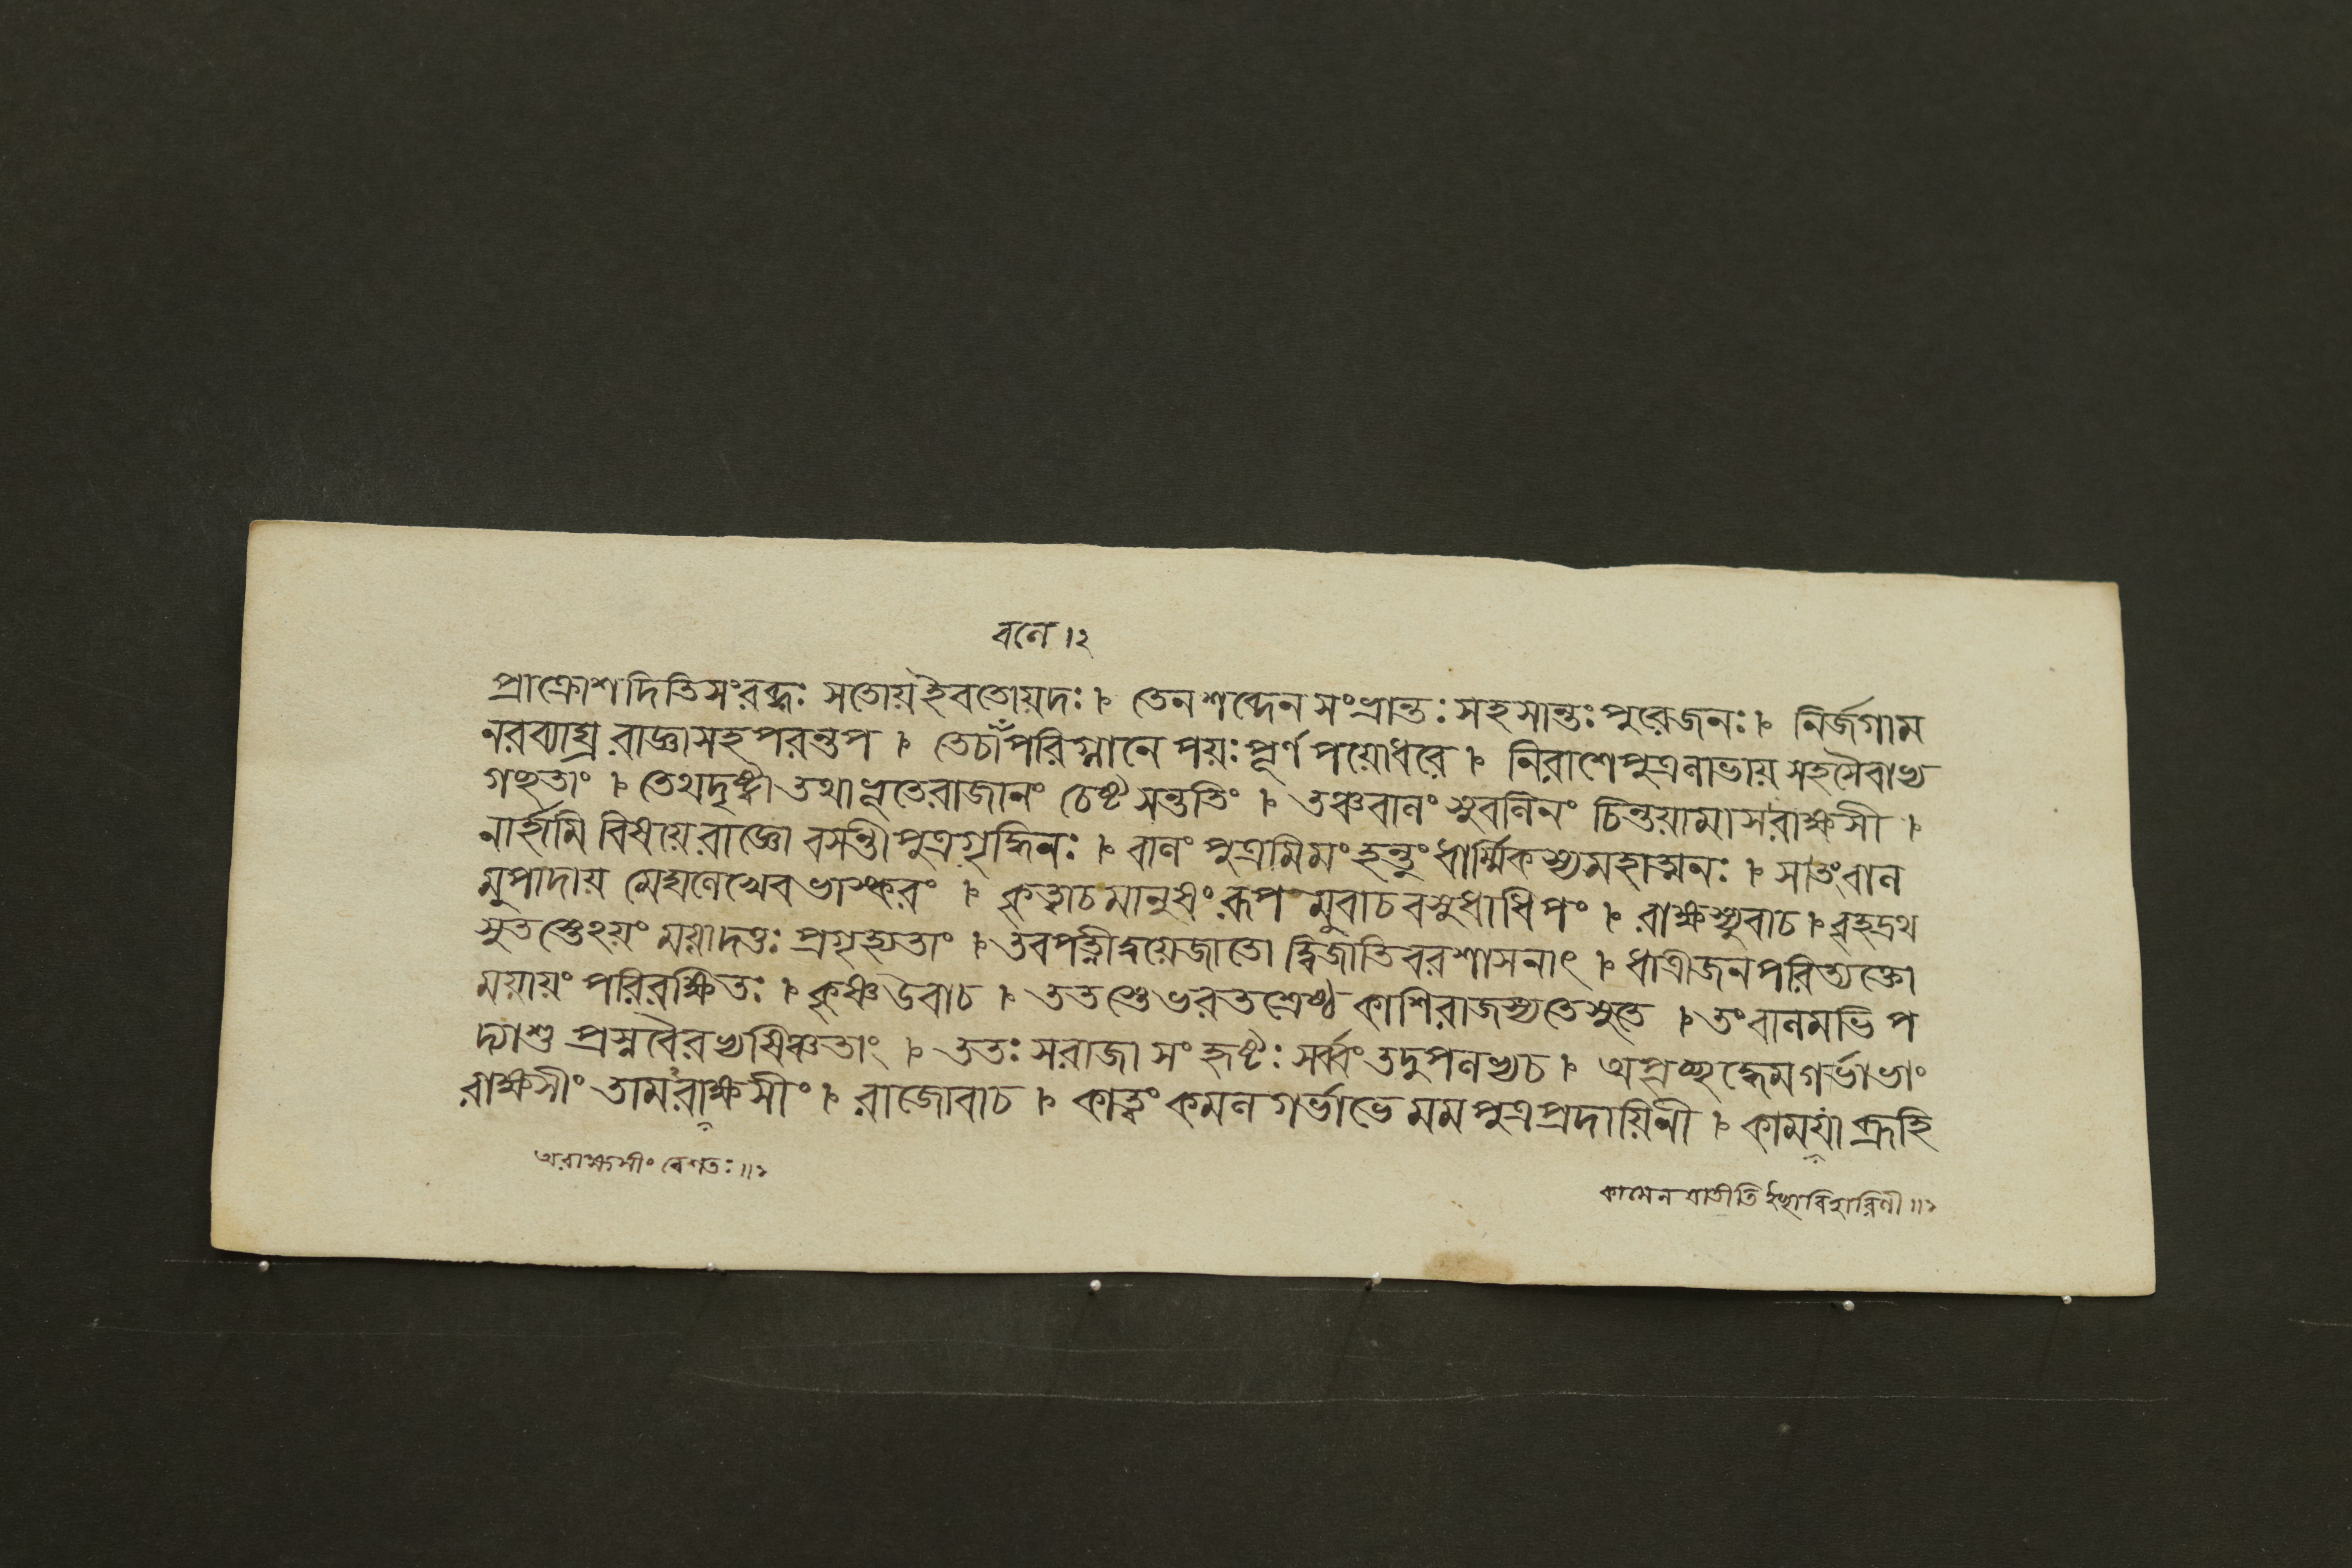 বলে ।২
প্রাক্রোশদিতিসংরব্ধঃ সতোয়ইবতোয়দঃ । তেনশব্দেনসংভ্রান্তঃ সহসান্তঃপুরেজনঃ । নির্জগাম
নরব্যাঘ্র রাজ্ঞাসহপরন্তপ । তেচাঁপরিম্লানে পয়ঃপূর্ণপয়োধরে । নিরাশেপুত্রলাভায় সহসৈবাভ্য
গচ্ছতাং । তেথদৃষ্ট্বাতথাভূতেরাজানং চেষ্টসন্ততিং । তঞ্চবালং সুবলিনং চিন্তয়ামাসরাক্ষসী ।
নার্হামি বিষয়েরাজ্ঞো বসন্তীপুত্রগৃদ্ধিনঃ । বালং পুত্রমিমংহন্তুং ধার্ম্মিকস্যমহাত্মনঃ । সাতংবাল
মুপাদায় মেঘলেখেবভাস্করং । কৃত্বাচমানুষংরূপ মুবাচবসুধাধিপং । রাক্ষস্যুবাচ । বৃহদ্রথ
সুতস্তেঽয়ং ময়াদত্তঃ প্রগৃহ্যতাং । তবপত্নীদ্বয়েজাতো দ্বিজাতিবরশাসনাৎ । ধাত্রীজনপরিত্যক্তো
ময়ায়ং পরিরক্ষিতঃ । কৃষ্ণউবাচ । ততস্তেভরতশ্রেষ্ঠ কাশিরাজস্যতেসুতে । তংবালমভিপ
দ্যাশু প্রস্নবৈরভ্যষিঞ্চতাং । ততঃ সরাজা সংহৃষ্টঃ সর্ব্বংতদুপলভ্যচ । অপৃচ্ছদ্ধেমগর্ভাভাং
রাক্ষসীং তামরাক্ষসীং । রাজোবাচ । কাত্বং কমলগর্ভাভে মমপুত্রপ্রদায়িনী । কাময়াব্রূহি
অরাক্ষসীং বেশতঃ ॥১